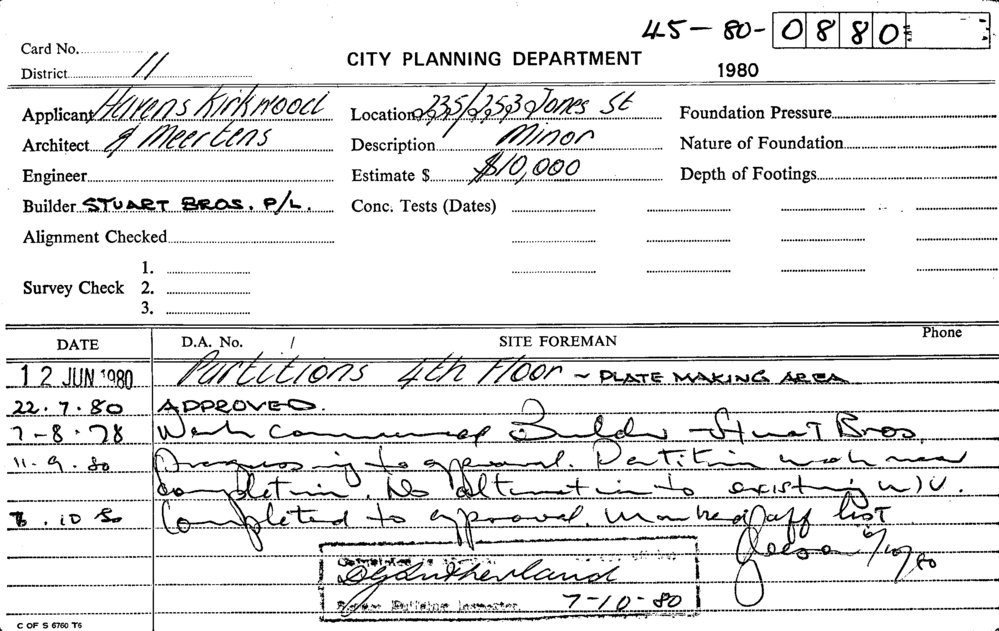 45-80-0880
Card No.
District 11
CITY PLANNING DEPARTMENT
1980
Applicant Havens Kirkwood
Location 235/253 Jones St
Foundation Pressure
Architect & Meertens
Description Minor
Nature of Foundation
Engineer
Estimate $ $10,000
Depth of Footings
Builder STUART BROS. P/L.
Conc. Tests (Dates)
Alignment Checked
1.
Survey Check 2.
3.
DATE D.A. No. / SITE FOREMAN Phone
12 JUN 1980 Partitions 4th Floor ~ PLATE MAKING AREA
22.7.80 APPROVED.
7-8.78 Work commenced Builder Stuart Bros.
11.9.80 Progressing to approval. Partition work near
completion. No alternation to existing W/V.
10 80 Completed to approval. Marked off list
6/10/80
Sutherland
Building Inspector 7-10-80
C OF S 6760 T6